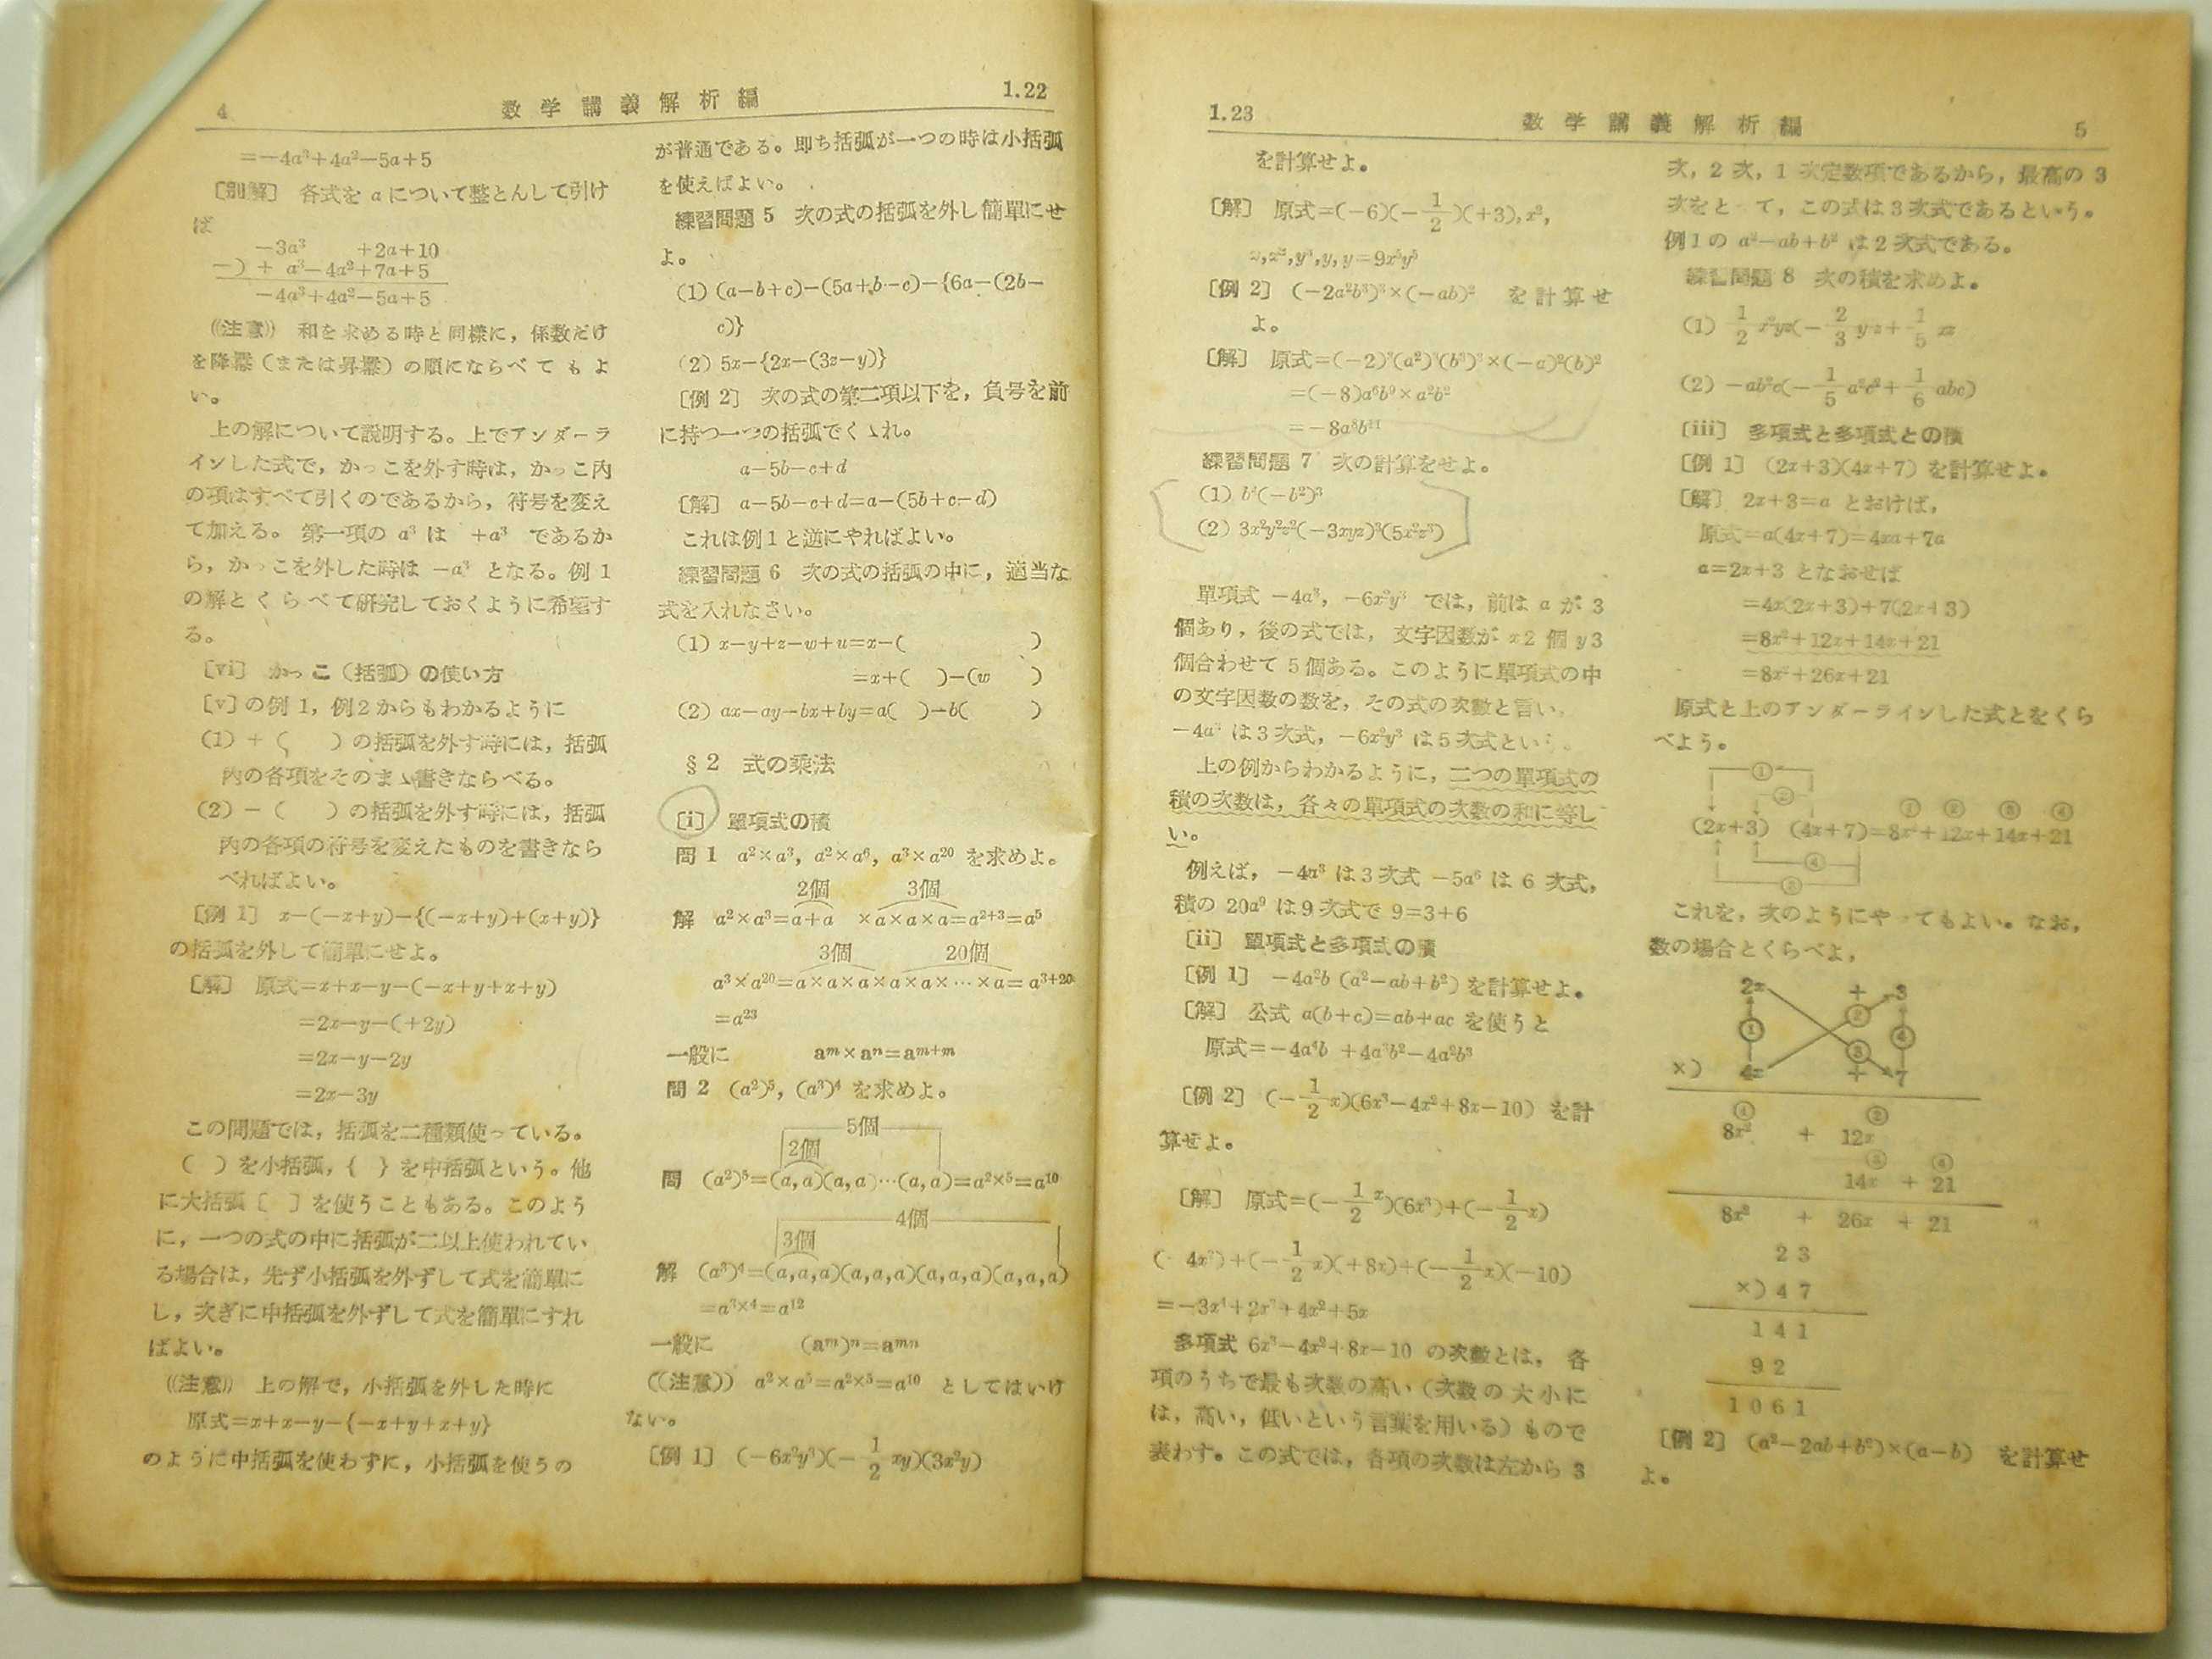 4 数学講義解析編 1.22
=-4a³+4a²-5a+5
〔別解〕 各式を a について整とんして引け
ば
-3a³ +2a+10
-) + a³-4a²+7a+5
-4a³+4a²-5a+5
((注意)) 和を求める時と同様に,係数だけ
を降羃(または昇羃)の順にならべてもよ
い。
上の解について説明する。上でアンダーラ
インした式で,かっこを外す時は,かっこ内
の項はすべて引くのであるから,符号を変え
て加える。第一項の a³ は +a³ であるか
ら,かっこを外した時は -a³ となる。例1
の解とくらべて研究しておくように希望す
る。
〔vi〕 かっこ(括弧)の使い方
〔v〕の例1,例2からもわかるように
(1) + ( ) の括弧を外す時には,括弧
内の各項をそのまゝ書きならべる。
(2) - ( ) の括弧を外す時には,括弧
内の各項の符号を変えたものを書きなら
べればよい。
〔例 1〕 x-(-x+y)-{(-x+y)+(x+y)}
の括弧を外して簡單にせよ。
〔解〕 原式=x+x-y-(-x+y+x+y)
=2x-y-(+2y)
=2x-y-2y
=2x-3y
この問題では,括弧を二種類使っている。
( )を小括弧,{ }を中括弧という。他
に大括弧〔 〕を使うこともある。このよう
に,一つの式の中に括弧が二以上使われてい
る場合は,先ず小括弧を外ずして式を簡單に
し,次ぎに中括弧を外ずして式を簡單にすれ
ばよい。
((注意)) 上の解で,小括弧を外した時に
原式=x+x-y-{-x+y+x+y}
のように中括弧を使わずに,小括弧を使うの
が普通である。即ち括弧が一つの時は小括弧
を使えばよい。
練習問題 5 次の式の括弧を外し簡單にせ
よ。
(1) (a-b+c)-(5a+b-c)-{6a-(2b-
c)}
(2) 5x-{2x-(3z-y)}
〔例 2〕 次の式の第二項以下を,負号を前
に持つ一つの括弧でくゝれ。
a-5b-c+d
〔解〕 a-5b-c+d=a-(5b+c-d)
これは例1と逆にやればよい。
練習問題 6 次の式の括弧の中に,適当な
式を入れなさい。
(1) x-y+z-w+u=x-( )
=x+( )-(w )
(2) ax-ay-bx+by=a( )-b( )
§2 式の乗法
〔i〕 單項式の積
問 1 a²×a³, a²×a⁶, a³×a²⁰ を求めよ。
2個 3個
解 a²×a³=a+a ×a×a×a=a²⁺³=a⁵
3個 20個
a³×a²⁰=a×a×a×a×a×…×a=a³⁺²⁰
=a²³
一般に aᵐ×aⁿ=aᵐ⁺ᵐ
問 2 (a²)⁵, (a³)⁴ を求めよ。
5個
2個
問 (a²)⁵=(a,a)(a,a)…(a,a)=a²ˣ⁵=a¹⁰
4個
3個
解 (a³)⁴=(a,a,a)(a,a,a)(a,a,a)(a,a,a)
=a³ˣ⁴=a¹²
一般に (aᵐ)ⁿ=aᵐⁿ
((注意)) a²×a⁵=a²ˣ⁵=a¹⁰ としてはいけ
ない。
〔例 1〕 (-6x²y³)(-1/2 xy)(3x²y)
1.23 数学講義解析編 5
を計算せよ。
〔解〕 原式=(-6)(-1/2)(+3),x²,
x,x²,y³,y,y=9x⁵y⁵
〔例 2〕 (-2a²b³)³×(-ab)² を計算せ
よ。
〔解〕 原式=(-2)³(a²)³(b³)³×(-a)²(b)²
=(-8)a⁶b⁹×a²b²
=-8a⁸b¹¹
練習問題 7 次の計算をせよ。
(1) (-b²)³
(2) 3x²y²z²(-3xyz)³(5x²z³)
單項式 -4a³, -6x²y³ では,前は a が 3
個あり,後の式では,文字因数が x2 個 y3
個合わせて 5 個ある。このように單項式の中
の文字因数の数を,その式の次数と言い,
-4a³ は3次式,-6x²y³ は5次式という。
上の例からわかるように,二つの單項式の
積の次数は,各々の單項式の次数の和に等し
い。
例えば,-4a³ は3次式 -5a⁶ は 6 次式,
積の 20a⁹ は9次式で 9=3+6
〔ii〕 單項式と多項式の積
〔例 1〕 -4a²b (a²-ab+b²) を計算せよ。
〔解〕 公式 a(b+c)=ab+ac を使うと
原式=-4a⁴b +4a³b²-4a²b³
〔例 2〕 (-1/2 x)(6x³-4x²+8x-10) を計
算せよ。
〔解〕 原式=(-1/2 x)(6x³)+(-1/2 x)
( 4x²)+(-1/2 x)(+8x)+(-1/2 x)(-10)
=-3x⁴+2x³+4x²+5x
多項式 6x³-4x²+8x-10 の次数とは,各
項のうちで最も次数の高い(次数の大小に
は,高い,低いという言葉を用いる)もので
表わす。この式では,各項の次数は左から 3
次,2次,1次定数項であるから,最高の 3
次をと て,この式は3次式であるという。
例1の a²-ab+b² は2次式である。
練習問題 8 次の積を求めよ。
(1) 1/2 x²yz(-2/3 yz+1/5 xz
(2) -ab²c(-1/5 a²c²+1/6 abc)
〔iii〕 多項式と多項式との積
〔例 1〕 (2x+3)(4x+7) を計算せよ。
〔解〕 2x+3=a とおけば,
原式=a(4x+7)=4xa+7a
a=2x+3 となおせば
=4x(2x+3)+7(2x+3)
=8x²+12x+14x+21
=8x²+26x+21
原式と上のアンダーラインした式とをくら
べよう。
①
②
① ② ③ ④
(2x+3) (4x+7)=8x²+12x+14x+21
④
③
これを,次のようにや てもよい。なお,
数の場合とくらべよ,
2x + 3
① ② ③ ④
×) 4x + 7
① ②
8x² + 12x
③ ④
14x + 21
8x² + 26x + 21
23
×)47
141
92
1061
〔例 2〕 (a²-2ab+b²)×(a-b) を計算せ
よ。